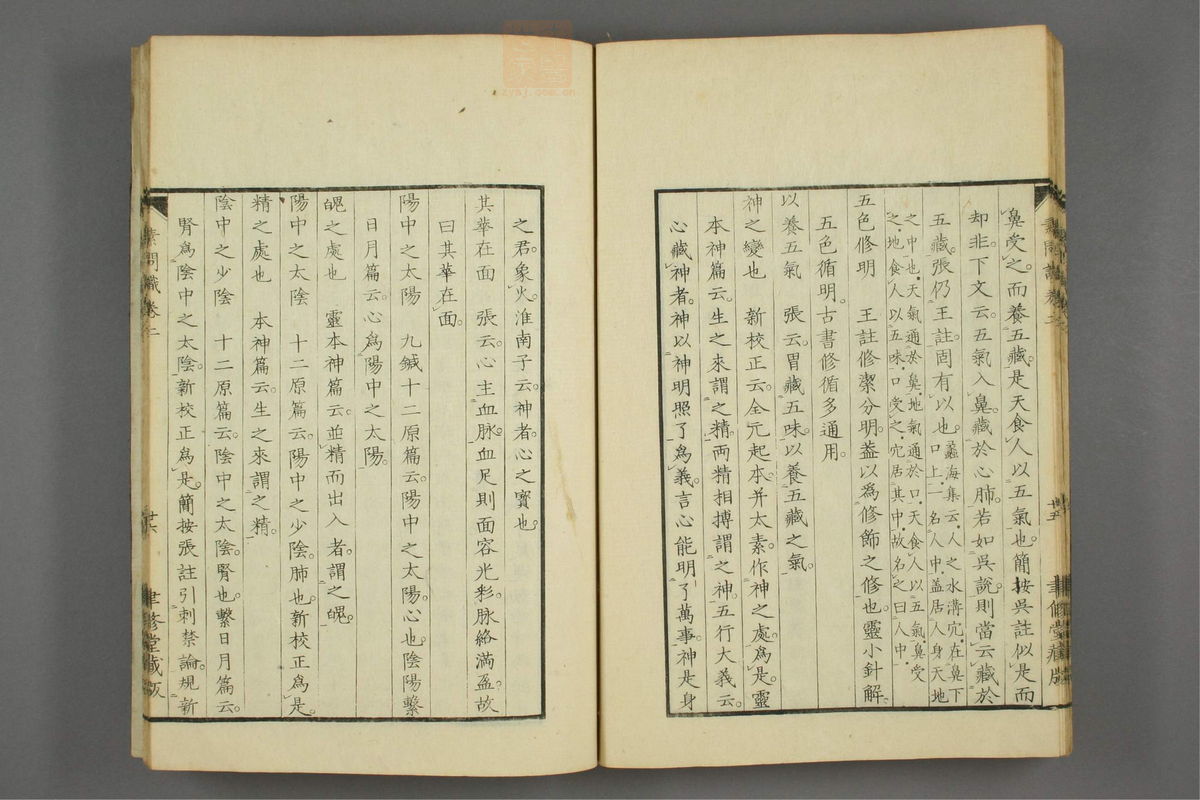 鼻受之。而養五藏。是天食人以五氣也。簡按吳註似是而
却非。下文云。五氣入鼻。藏於心肺。若如吳說。則當云藏於
五藏。張仍王註。固有以也。蠡海集云。人之水溝宂。在鼻下
口上。一名人中。盖居人身天地
之中也。天氣通於鼻。地氣通於口。天食人以五氣。鼻受
之。地食人以五味。口受之。宂居其中。故名之曰人中。
五色修明　王註修潔分明。葢以爲修飾之修也。靈小針解。
五色循明。古書修循多通用。
以養五氣　張云。胃藏五味。以養五藏之氣。
神之變也　新校正云。全元起本。并太素。作神之處。爲是。靈
本神篇云。生之來謂之精。兩精相搏謂之神。五行大義云。
心藏神者。神以神明照了爲義。言心能明了萬事。神是身
之君。象火。淮南子云。神者。心之寶也。
其華在面　張云。心主血脉。血足則面容光彩。脉絡滿盈。故
曰其華在面。
陽中之太陽　九鍼十二原篇云。陽中之太陽。心也。陰陽繫
日月篇云。心爲陽中之太陽。
魄之處也　靈本神篇云。並精而出入者。謂之魄。
陽中之太陰　十二原篇云。陽中之少陰。肺也。新校正爲是。
精之處也　本神篇云。生之來謂之精。
陰中之少陰　十二原篇云。陰中之太陰。腎也。繫日月篇云。
腎爲陰中之太陰。新校正爲是。簡按張註引刺禁論。規新
素問識卷二
廿五
聿修堂藏版
素問識卷二
廿六
聿修堂藏版
zysj.com.cn